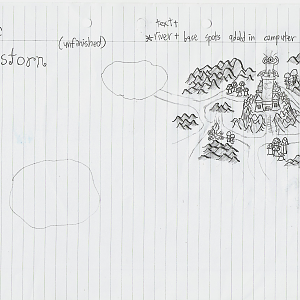 text +
(unfinished)
*river + base spots added in computer
storn